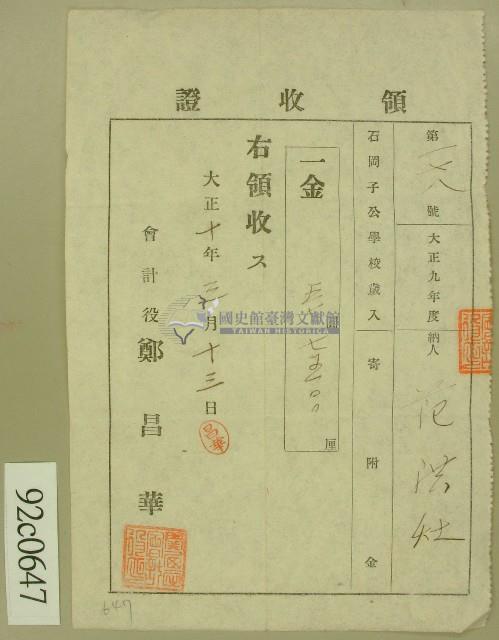 領收證
第一八號 大正九年度 納人 范洪灶
石岡子公學校歲入 寄附金
一金 圓 厘
右領收ス
大正十年三月十三日
會計役 鄭昌華
昌華
國史館臺灣文獻館
TAIWAN HISTORICA
92c0647
647